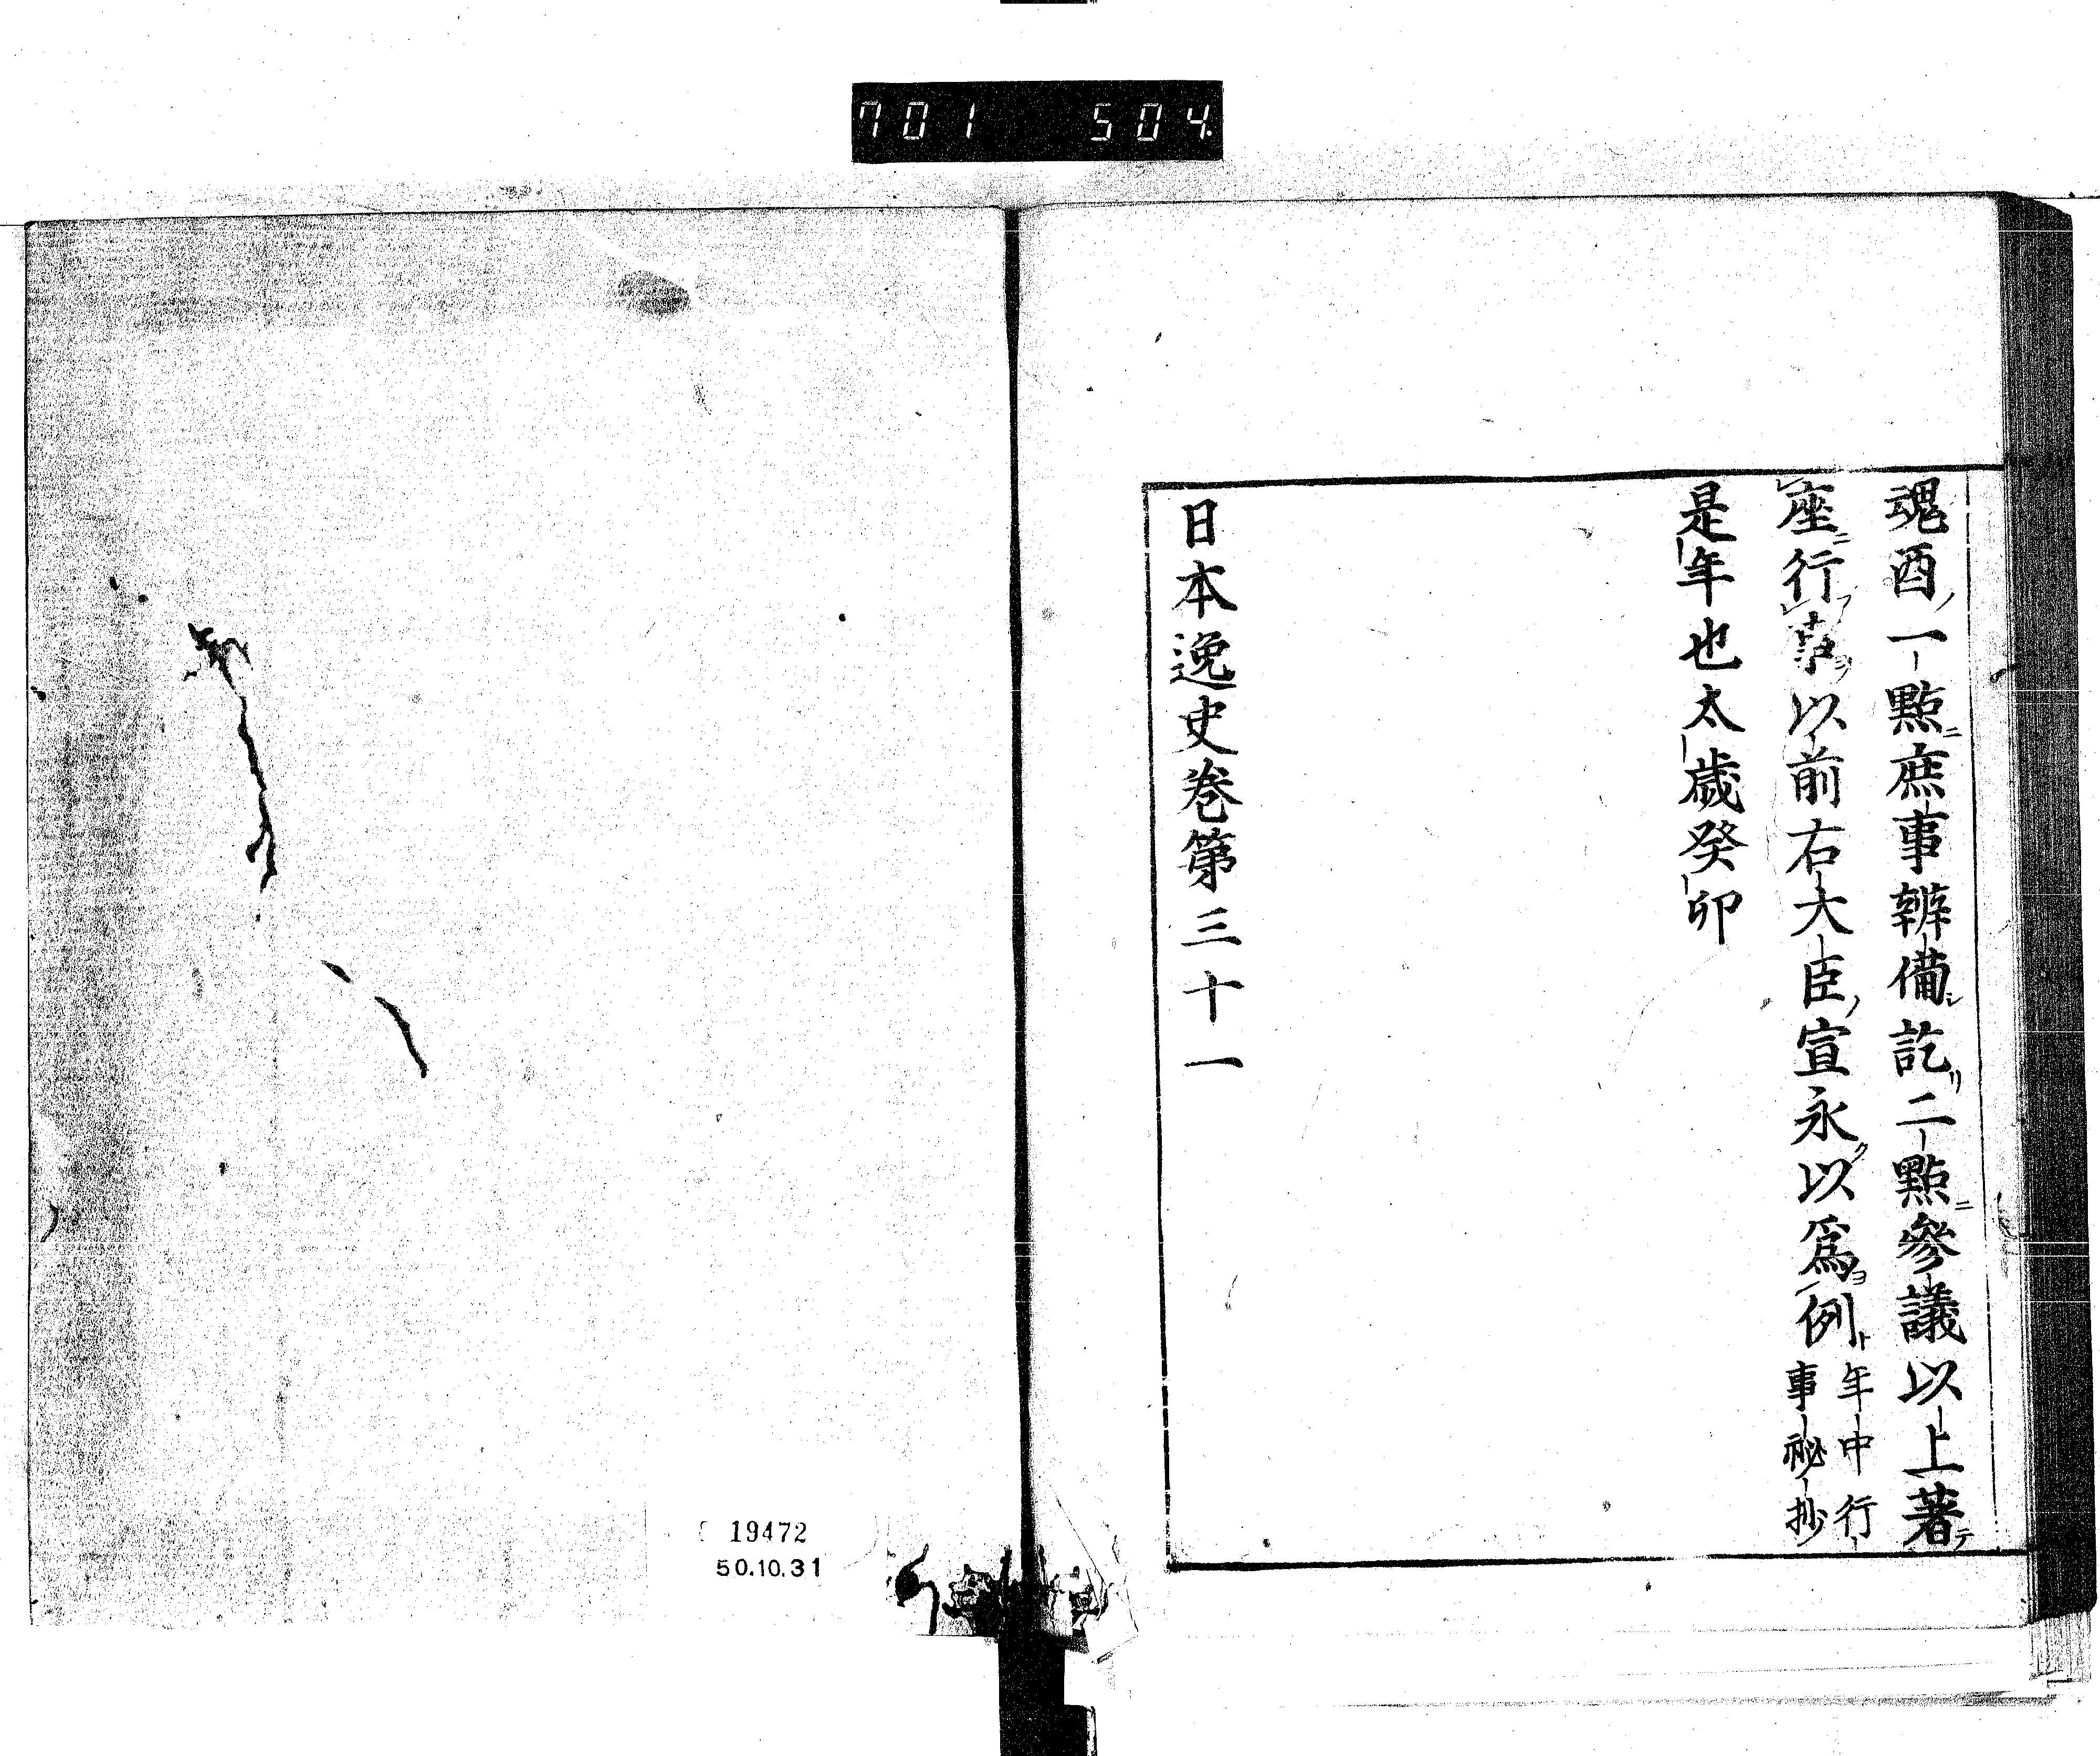 701 504
魂酉ノ一點ニ庶事辨備シ訖リ二點ニ參議以上著テ
座ニ行フ事ヲ以前右大臣ノ宣永ク以爲ヨ例ト年中行
事秘抄
是年也太歲癸卯
日本逸史卷第三十一
19472
50.10.31